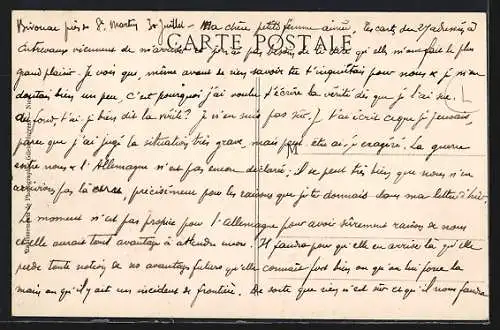 Bivouac près de St. Martin 30 Juillet - Ma chère petite femme aimée, Tes cartes du 27 adressées à
viennent de m'arriver. Je n'ai pas besoin de te dire qu'elles m'ont fait le plus
CARTE POSTALE
grand plaisir. Je vois que, même avant de rien savoir tu t'inquiétais pour nous & je m'en
doutais bien un peu, c'est pourquoi j'ai voulu t'écrire la vérité dès que je l'ai sue.
Au fond, t'ai-je bien dit la vérité? Je n'en suis pas sûr. Je t'ai écrit ce que je pensais,
parce que j'ai jugé la situation très grave, mais peut être ai-je exagéré. La guerre
entre nous & l'Allemagne n'est pas encore déclarée; il se peut très bien que nous n'en
arrivions pas là, précisément pour les raisons que je te donnais dans ma lettre d'hier.
Le moment n'est pas propice pour l'Allemagne pour avoir sûrement raison de nous
et elle aurait tout avantage à attendre encore. Il faudra pour qu'elle en arrive là qu'elle
perde toute notion de ses avantages futurs qu'elle connaît fort bien ou qu'on lui force la
main ou qu'il y ait un incident de frontière. De sorte que rien n'est sûr et qu'il nous faudra
M